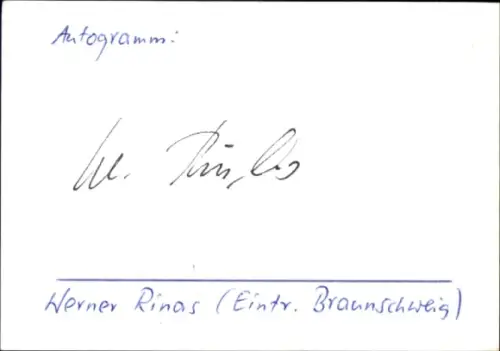 Autogramm:
W.
Werner Rinas (Eintr. Braunschweig)